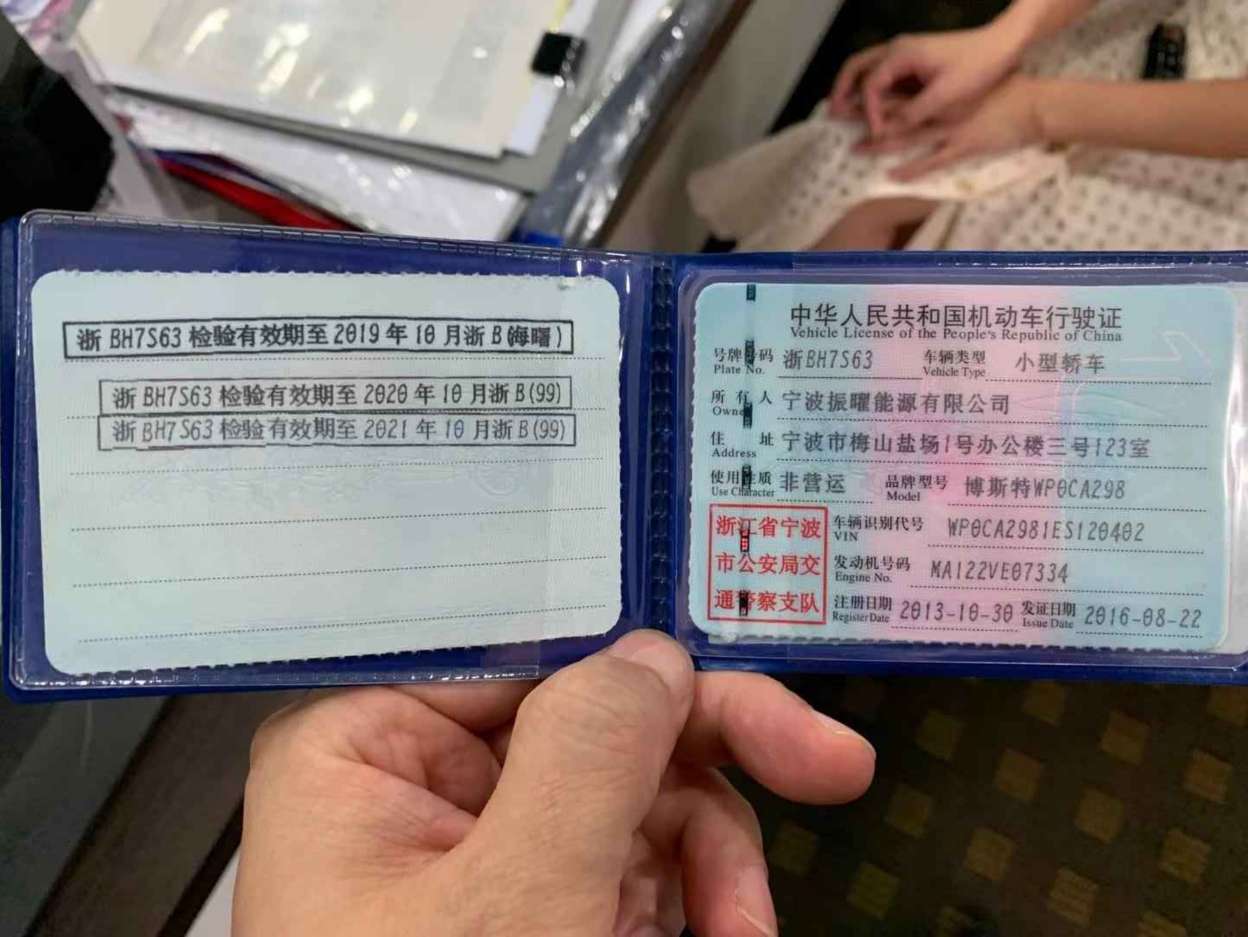 浙BH7S63检验有效期至2019年10月浙B(海曙)
浙BH7S63检验有效期至2020年10月浙B(99)
浙BH7S63检验有效期至2021年10月浙B(99)
中华人民共和国机动车行驶证
Vehicle License of the People's Republic of China
号牌号码 浙BH7S63 车辆类型 小型轿车
Plate No. Vehicle Type
所有人 宁波振曜能源有限公司
Owner
住址 宁波市梅山盐场1号办公楼三号123室
Address
使用性质 非营运 品牌型号 博斯特WP0CA298
Use Character Model
浙江省宁波
市公安局交
通警察支队
车辆识别代号 WP0CA2981ES120402
VIN
发动机号码 MA122VE07334
Engine No.
注册日期 2013-10-30 发证日期 2016-08-22
Register Date Issue Date